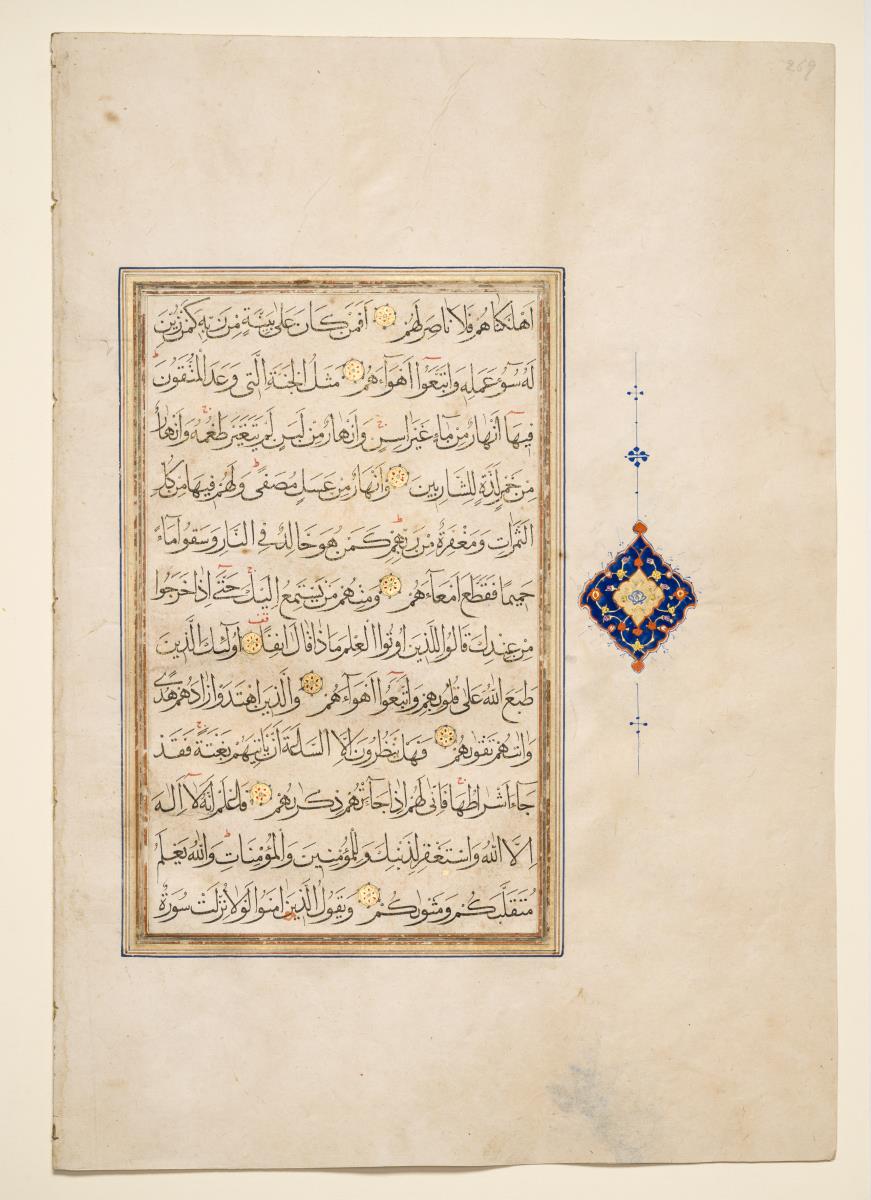 269
اَهْلَكْنَاهُمْ فَلَا نَاصِرَ لَهُمْ اَفَمَنْ كَانَ عَلٰى بَيِّنَةٍ مِنْ رَبِّهٖ كَمَنْ زُيِّنَ
لَهُ سُوٓءُ عَمَلِهٖ وَاتَّبَعُوٓا اَهْوَآءَهُمْ مَثَلُ الْجَنَّةِ الَّتٖى وُعِدَ الْمُتَّقُونَ
فٖيهَآ اَنْهَارٌ مِنْ مَآءٍ غَيْرِ اٰسِنٍ وَاَنْهَارٌ مِنْ لَبَنٍ لَمْ يَتَغَيَّرْ طَعْمُهُ وَاَنْهَارٌ
مِنْ خَمْرٍ لَذَّةٍ لِلشَّارِبٖينَ وَاَنْهَارٌ مِنْ عَسَلٍ مُصَفًّى وَلَهُمْ فٖيهَا مِنْ كُلِّ
الثَّمَرَاتِ وَمَغْفِرَةٌ مِنْ رَبِّهِمْ كَمَنْ هُوَ خَالِدٌ فِى النَّارِ وَسُقُوا مَآءً
حَمٖيمًا فَقَطَّعَ اَمْعَآءَهُمْ وَمِنْهُمْ مَنْ يَسْتَمِعُ اِلَيْكَ حَتّٰٓى اِذَا خَرَجُوا
مِنْ عِنْدِكَ قَالُوا لِلَّذٖينَ اُوتُوا الْعِلْمَ مَاذَا قَالَ اٰنِفًا اُولٰٓئِكَ الَّذٖينَ
طَبَعَ اللّٰهُ عَلٰى قُلُوبِهِمْ وَاتَّبَعُوٓا اَهْوَآءَهُمْ وَالَّذٖينَ اهْتَدَوْا زَادَهُمْ هُدًى
وَاٰتٰيهُمْ تَقْوٰيهُمْ فَهَلْ يَنْظُرُونَ اِلَّا السَّاعَةَ اَنْ تَاْتِيَهُمْ بَغْتَةً فَقَدْ
جَآءَ اَشْرَاطُهَا فَاَنّٰى لَهُمْ اِذَا جَآءَتْهُمْ ذِكْرٰيهُمْ فَاعْلَمْ اَنَّهُ لَآ اِلٰهَ
اِلَّا اللّٰهُ وَاسْتَغْفِرْ لِذَنْبِكَ وَلِلْمُؤْمِنٖينَ وَالْمُؤْمِنَاتِ وَاللّٰهُ يَعْلَمُ
مُتَقَلَّبَكُمْ وَمَثْوٰيكُمْ وَيَقُولُ الَّذٖينَ اٰمَنُوا لَوْلَا نُزِّلَتْ سُورَةٌ